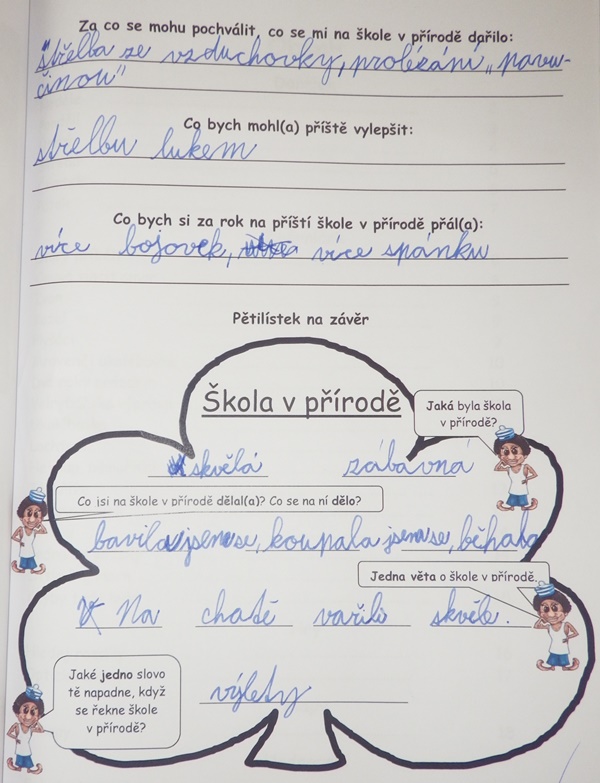 Za co se mohu pochválit, co se mi na škole v přírodě dařilo:
střelba ze vzduchovky, prolézání „pavu-
činou"
Co bych mohl(a) příště vylepšit:
střelbu lukem
Co bych si za rok na příští škole v přírodě přál(a):
více bojovek, více spánku
Pětilístek na závěr
Škola v přírodě
Jaká byla škola
v přírodě?
skvělá zábavná
Co jsi na škole v přírodě dělal(a)? Co se na ní dělo?
bavila jsem se, koupala jsem se, běhala
Jedna věta o škole v přírodě.
Na chatě vařili skvěle.
Jaké jedno slovo
tě napadne, když
se řekne škole
v přírodě?
výlety